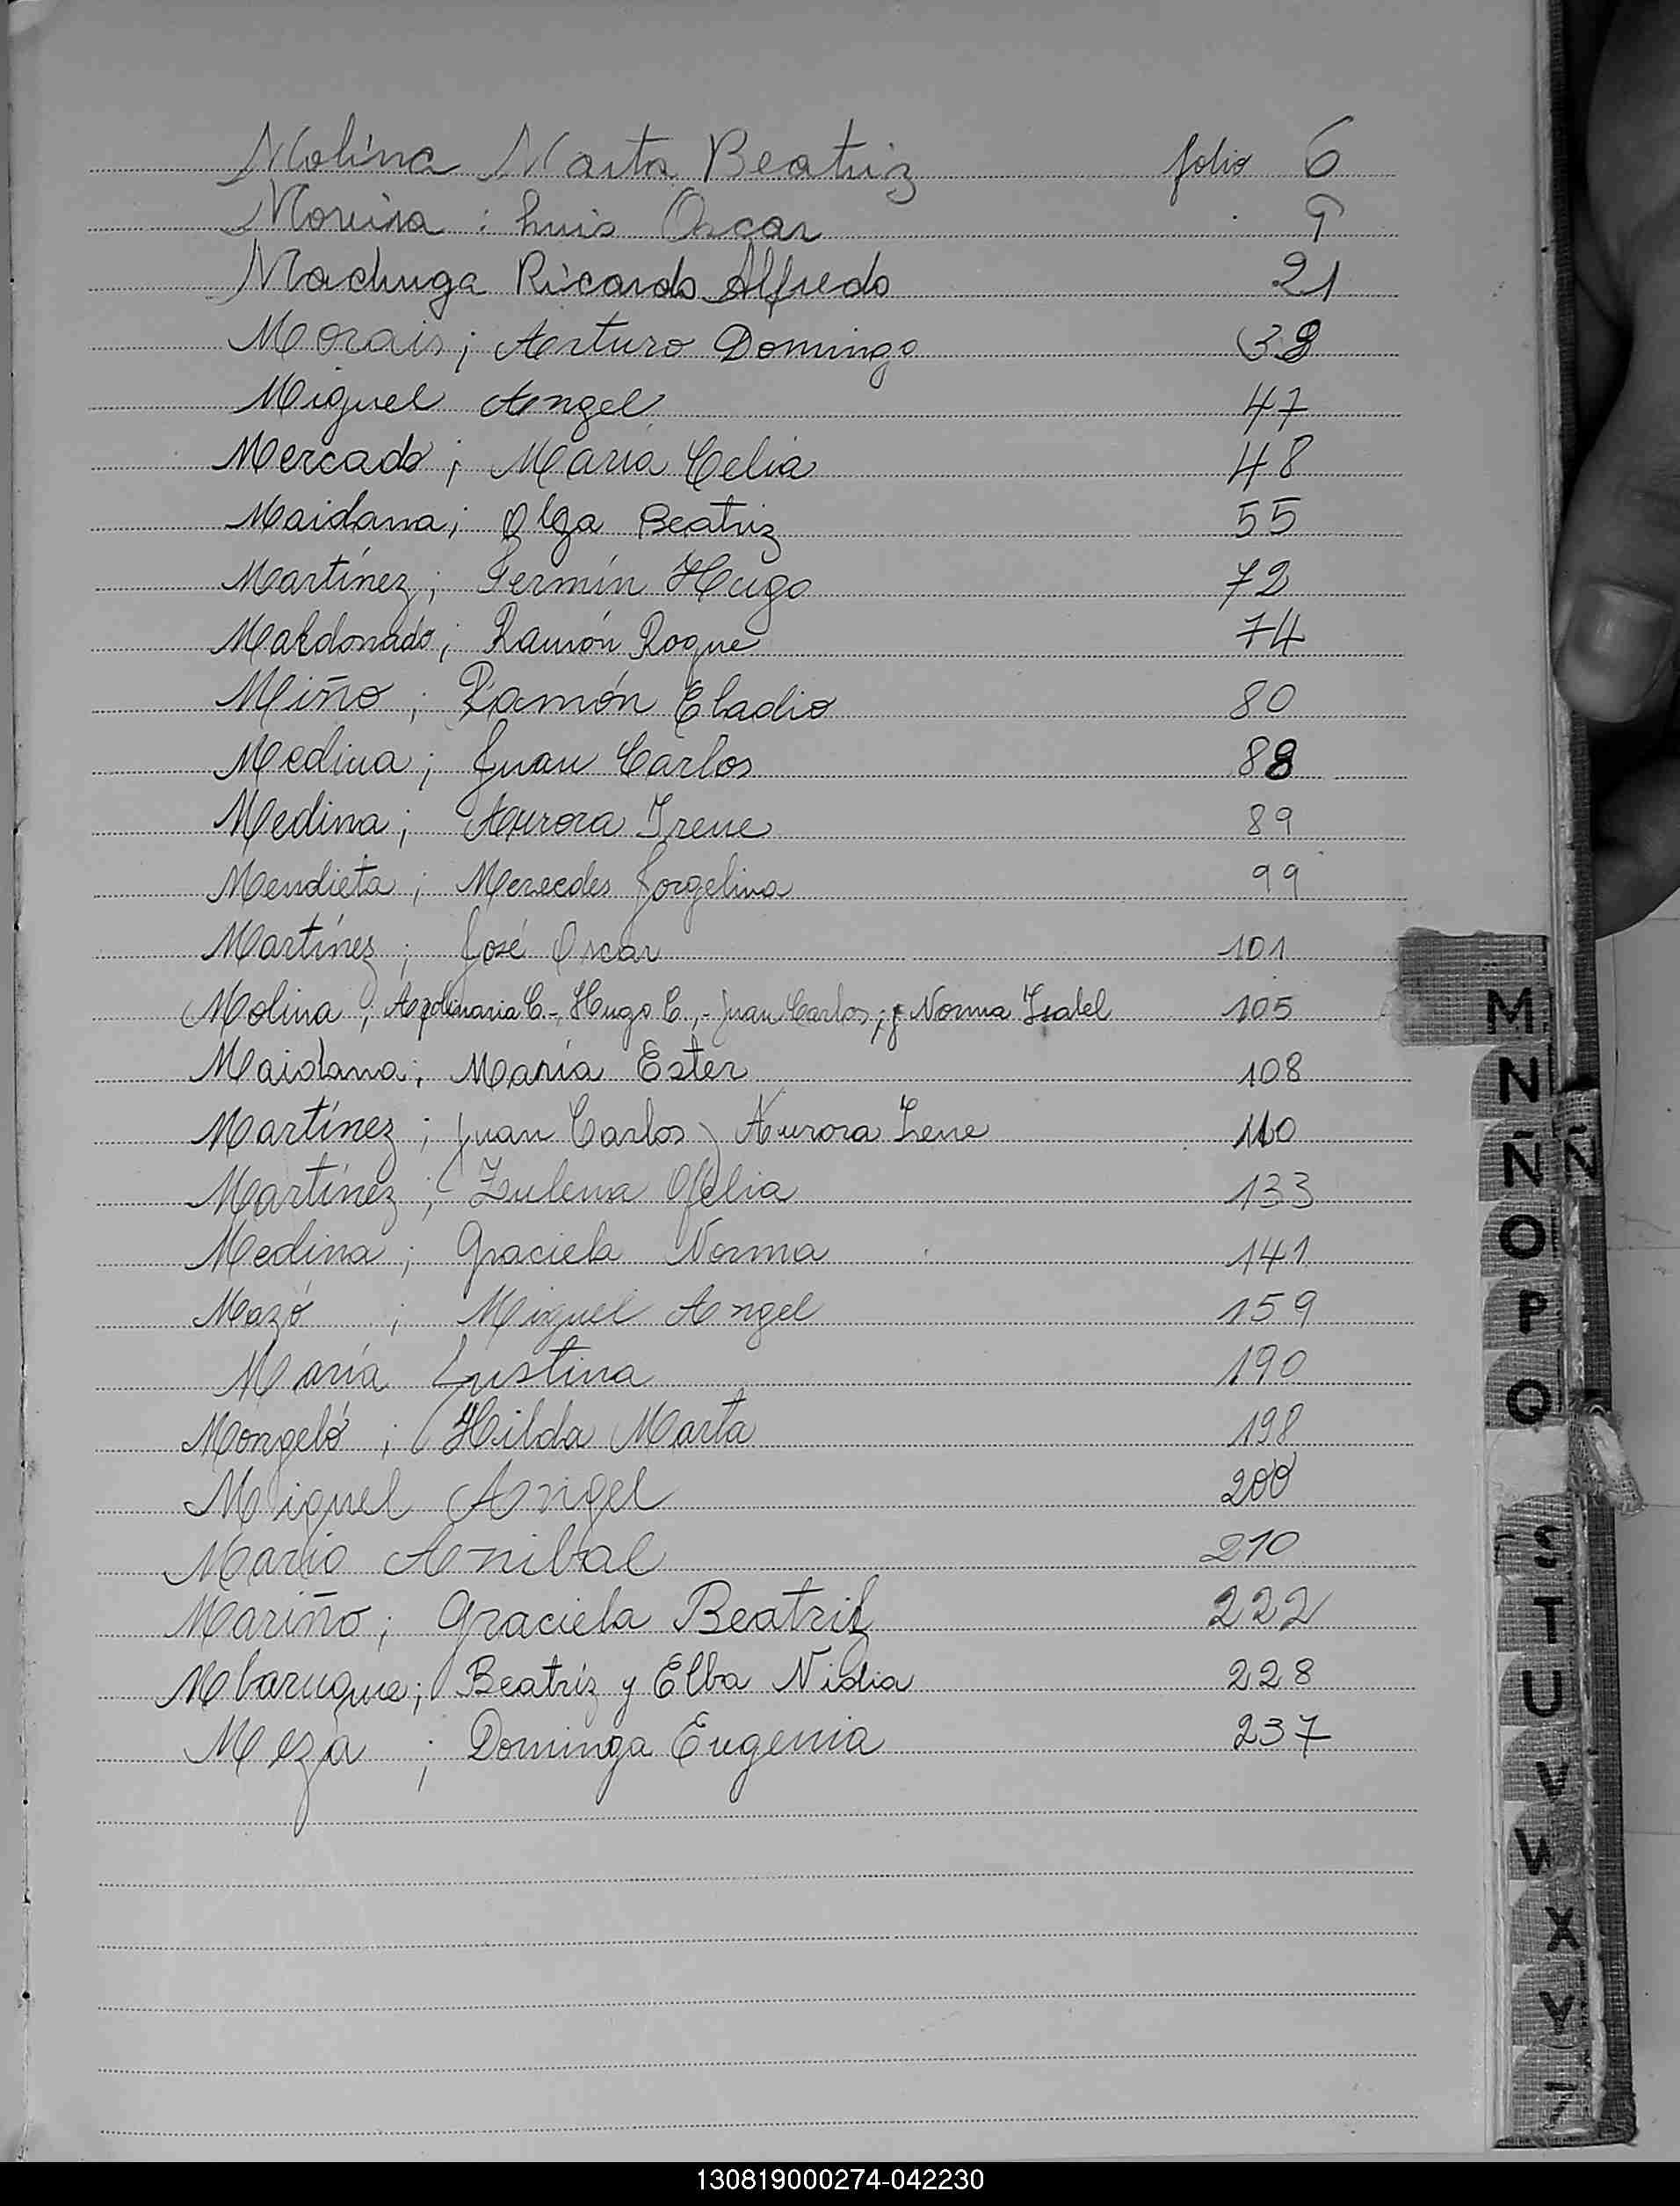 Molina Marta Beatriz folio 6
Moreira : Luis Oscar 9
Machuga Ricardo Alfredo 21
Morais; Arturo Domingo 39
Miguel Angel 47
Mercado; María Celia 48
Maidana; Olga Beatriz 55
Martínez; Fermín Hugo 72
Maldonado; Ramón Roque 74
Miño; Ramón Eladio 80
Medina; Juan Carlos 88
Medina; Aurora Irene 89
Mendieta; Mercedes Jorgelina 99
Martínez; José Oscar 101
Molina; Apolinaria C.-, Hugo C.,- Juan Carlos; y Norma Isabel 105
Maidana; María Ester 108
Martínez; Juan Carlos, Aurora 110
Martínez; Zulema Ofelia 133
Medina; Graciela Norma 141
Mazó ; Miguel Angel 159
María 190
Mongeló ; Hilda Marta 198
Miguel Angel 200
Mario Anibal 210
Mariño; Graciela Beatriz 222
Mbaruque; Beatriz y Elba Nidia 228
Meza ; Dominga Eugenia 237
M
N
Ñ Ñ
O
P
Q
T
U
V
W
X
Y
130819000274-042230